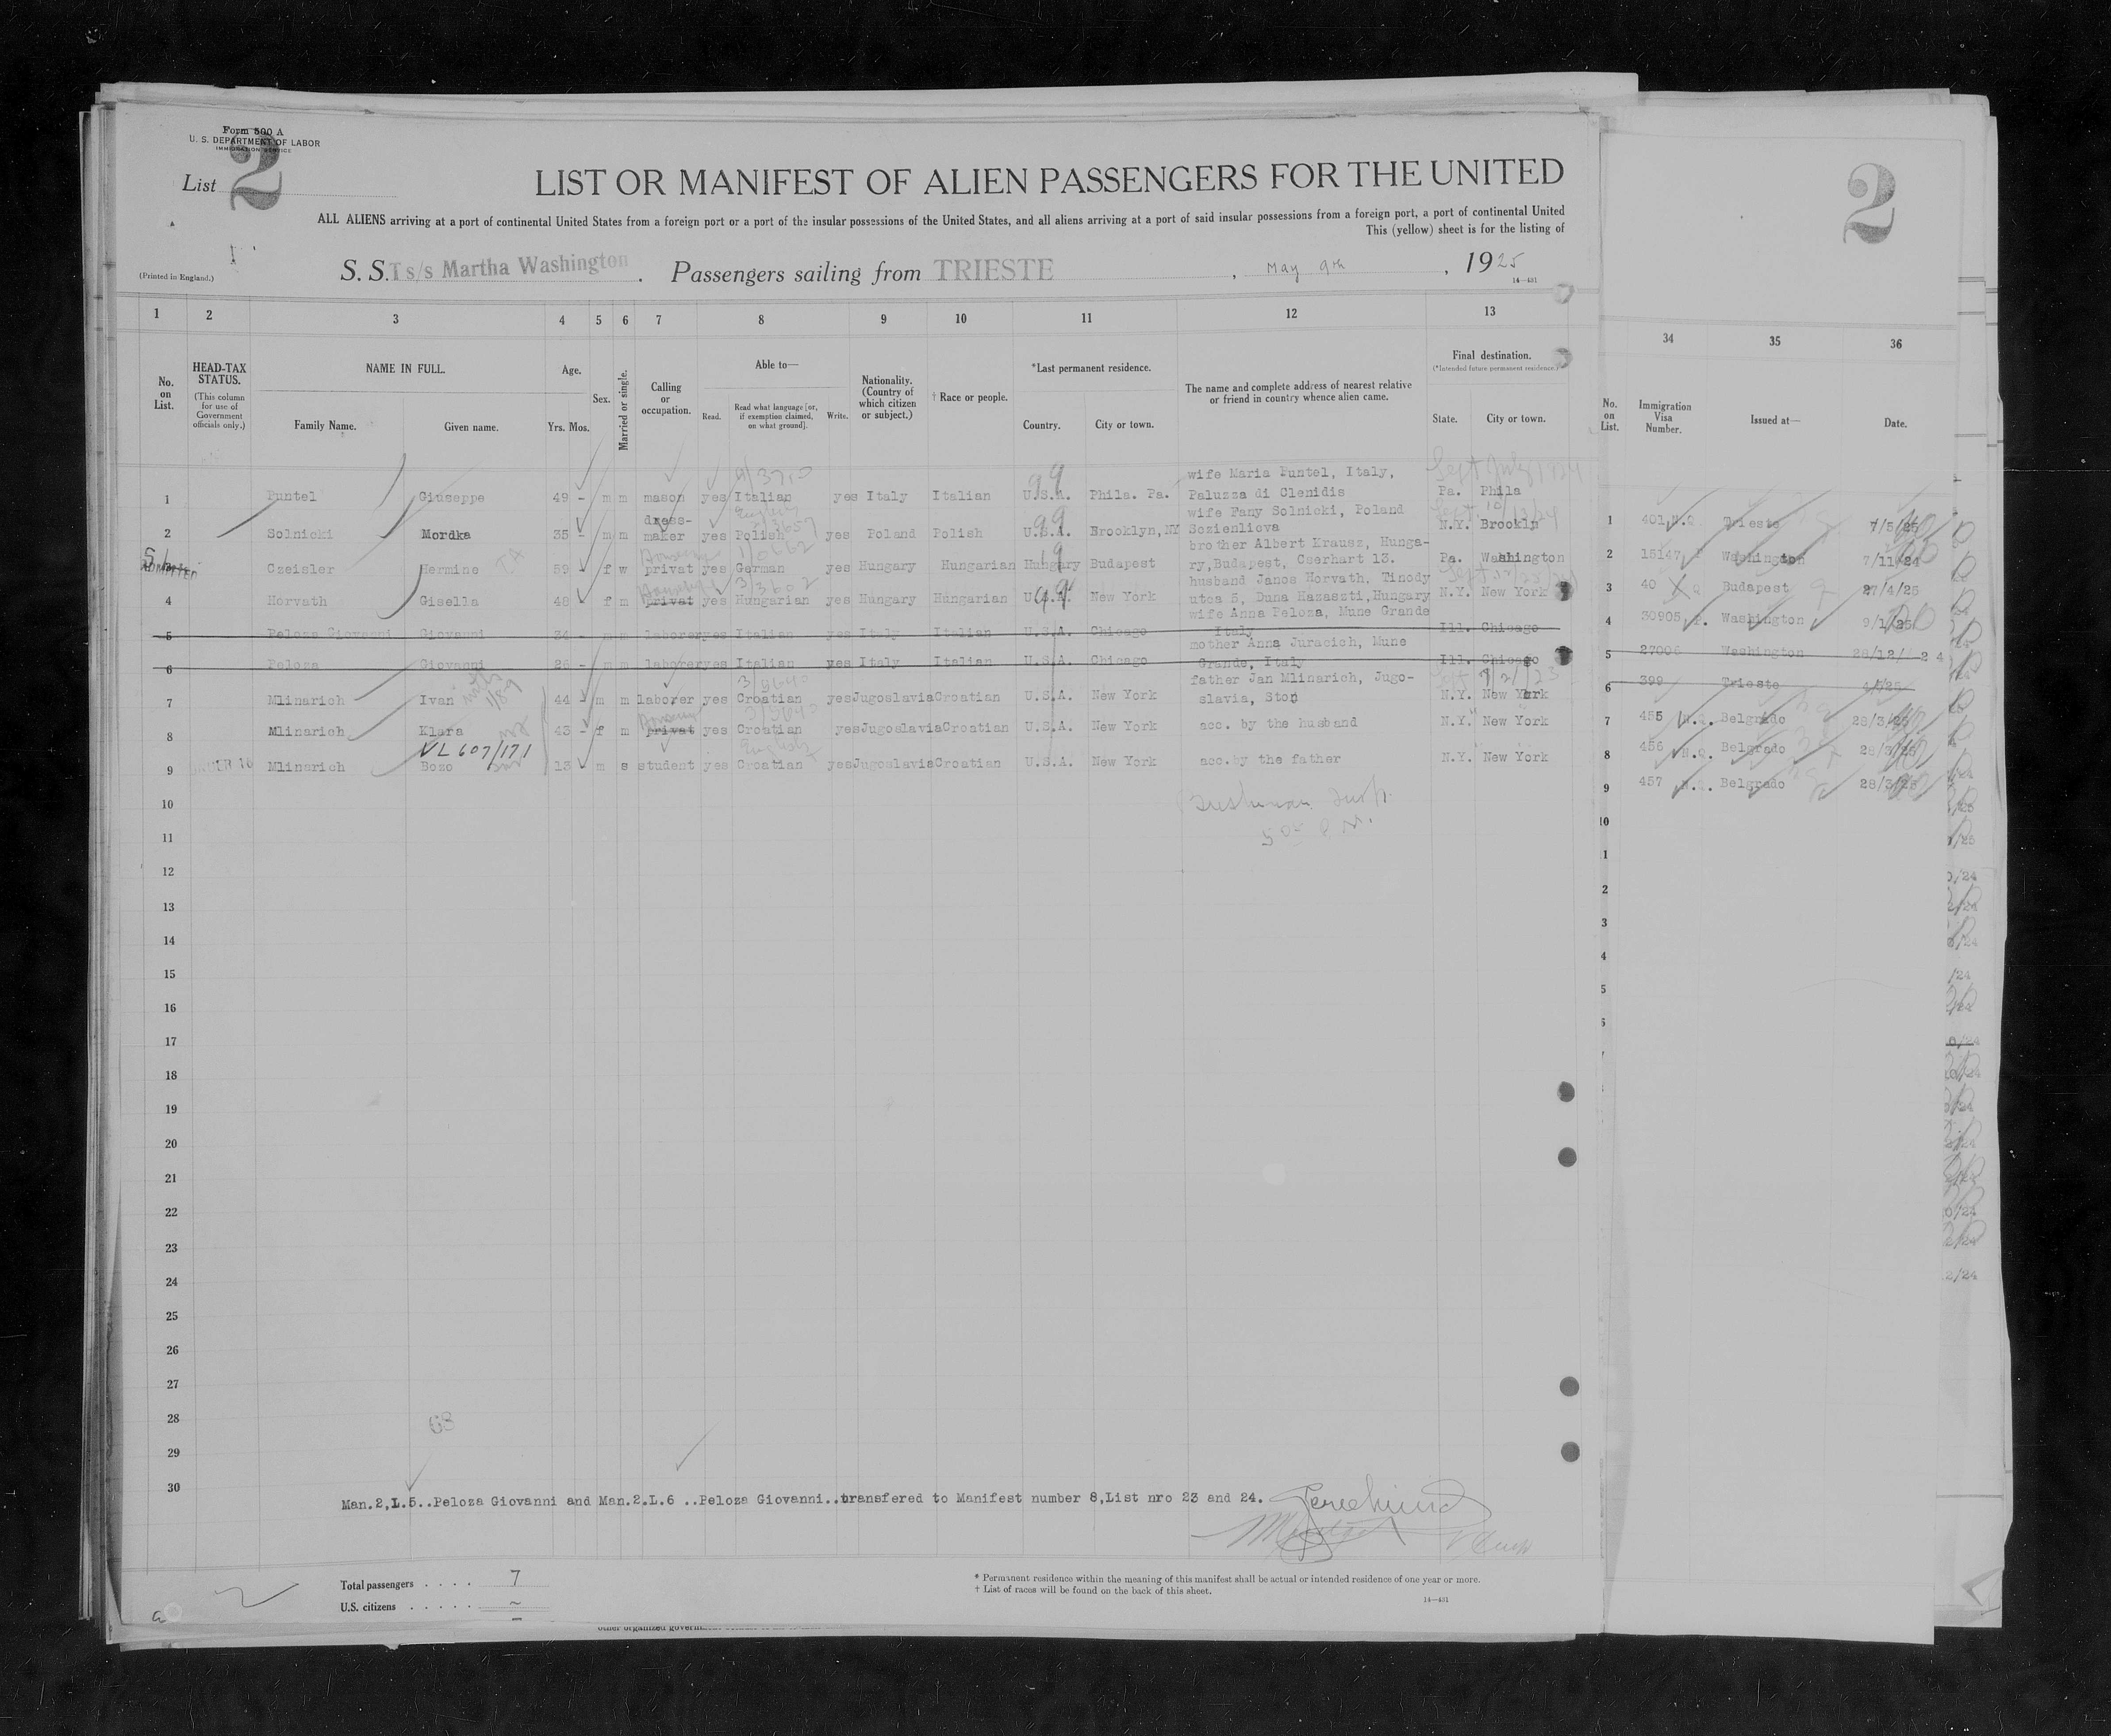 Form 500 A
U. S. DEPARTMENT OF LABOR
IMMIGRATION SERVICE
List 2
LIST OR MANIFEST OF ALIEN PASSENGERS FOR THE UNITED
ALL ALIENS arriving at a port of continental United States from a foreign port or a port of the insular possessions of the United States, and all aliens arriving at a port of said insular possessions from a foreign port, a port of continental United
This (yellow) sheet is for the listing of
(Printed in England.)
S. S. Ts/s Martha Washington. Passengers sailing from TRIESTE, May 9th, 1925
14—431
2
1 2 3 4 5 6 7 8 9 10 11 12 13
34 35 36
No. on List.
HEAD-TAX STATUS.
(This column for use of Government officials only.)
NAME IN FULL.
Family Name. Given name.
Age.
Yrs. Mos.
Sex.
Married or single.
Calling or occupation.
Able to—
Read. Read what language [or, if exemption claimed, on what ground]. Write.
Nationality. (Country of which citizen or subject.)
† Race or people.
*Last permanent residence.
Country. City or town.
The name and complete address of nearest relative or friend in country whence alien came.
Final destination.
(*Intended future permanent residence.)
State. City or town.
No. on List.
Immigration Visa Number.
Issued at—
Date.
1 Puntel Giuseppe 49 - m m mason yes Italian yes Italy Italian U.S.A. Phila. Pa. wife Maria Puntel, Italy, Paluzza di Clenidis Pa. Phila
2 Solnicki Mordka 35 - m m dress-maker yes Polish yes Poland Polish U.S.A. Brooklyn, NY wife Fany Solnicki, Poland Sozienliova N.Y. Brookln
Czeisler Hermine 59 - f w privat yes German yes Hungary Hungarian Hungary Budapest brother Albert Krausz, Hungary, Budapest, Cserhart 13. Pa. Washington
4 Horvath Gisella 48 f m privat yes Hungarian yes Hungary Hungarian U.S.A. New York husband Janos Horvath, Tinody utca 5, Duna Hazaszti, Hungary N.Y. New York
5 Peloza Giovanni Giovanni 34 - m m laborer yes Italian yes Italy Italian U.S.A. Chicago wife Anna Peloza, Mune Grande Italy Ill. Chicago
6 Peloza Giovanni 26 - m m laborer yes Italian yes Italy Italian U.S.A. Chicago mother Anna Juracich, Mune Grande, Italy Ill. Chicago
7 Mlinarich Ivan 44 - m m laborer yes Croatian yes Jugoslavia Croatian U.S.A. New York father Jan Mlinarich, Jugo-slavia, Ston N.Y. New York
8 Mlinarich Klara 43 - f m privat yes Croatian yes Jugoslavia Croatian U.S.A. New York acc. by the husband N.Y. New York
VL 607/171
9 UNDER 16 Mlinarich Bozo 13 m s student yes Croatian yes Jugoslavia Croatian U.S.A. New York acc. by the father N.Y. New York
10
11
12
13
14
15
16
17
18
19
20
21
22
23
24
25
26
27
28
29
30
1 401 N.Q. Trieste 7/5/25
2 15147 Washington 7/11/24
3 40 Q Budapest 27/4/25
4 30905 P. Washington 9/1/25
5 27006 Washington 28/12/ 24
6 399 Trieste
7 455 N.Q. Belgrado 28/3/25
8 456 N.Q. Belgrado 28/3/25
9 457 N.Q. Belgrado 28/3/25
10
68
Man.2,L.5..Peloza Giovanni and Man.2.L.6 ..Peloza Giovanni..transfered to Manifest number 8,List nro 23 and 24.
Total passengers . . . . 7
U.S. citizens . . . . . ~
* Permanent residence within the meaning of this manifest shall be actual or intended residence of one year or more.
† List of races will be found on the back of this sheet.
14—431